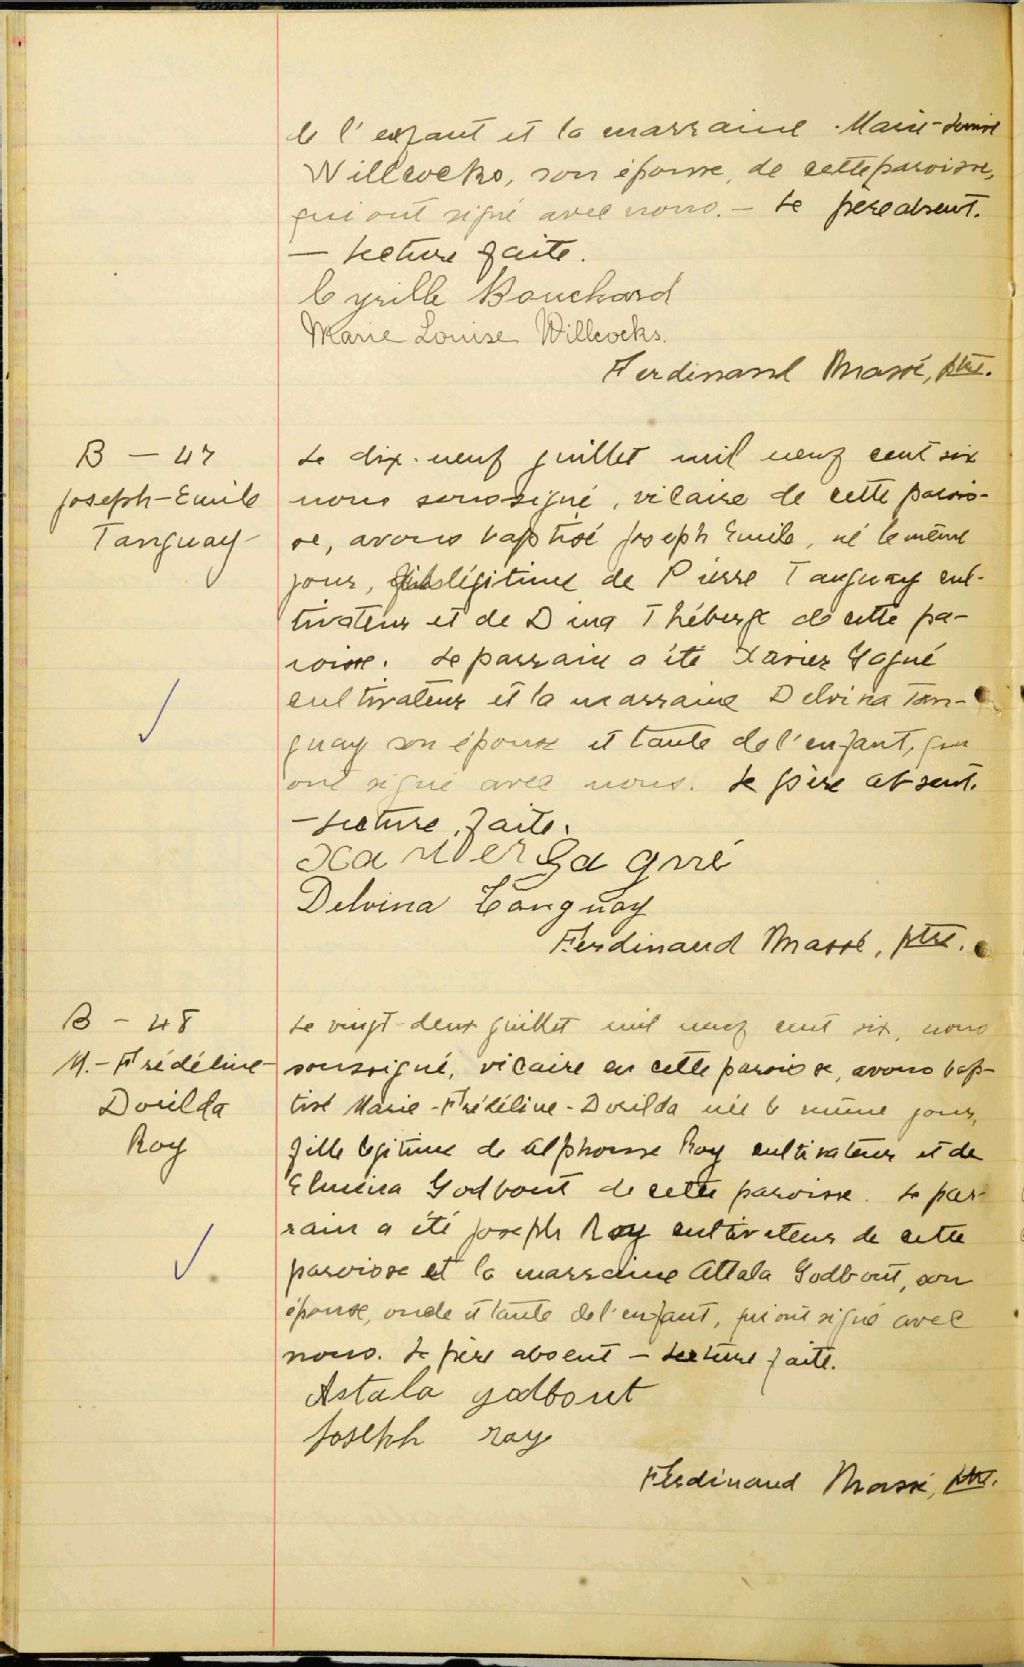 de l'enfant et la marraine Marie-Louise
Willcocks, son épouse, de cette paroisse,
qui ont signé avec nous. - Le père absent.
- Lecture faite.
Cyrille Bouchard
Marie Louise Willcocks.
Ferdinand Massé, ptre.
B - 47
Joseph-Emile
Tanguay
Le dix-neuf juillet mil neuf cent six
nous soussigné, vicaire de cette parois-
se, avons baptisé Joseph Emile, né le même
jour, fils légitime de Pierre Tanguay cul-
tivateur et de Dina Théberge de cette pa-
roisse. Le parrain a été Xavier Gagné
cultivateur et la marraine Delvina Tan-
guay son épouse et tante de l'enfant, qui
ont signé avec nous. Le père absent.
- Lecture faite.
Xavier Gagné
Delvina Tanguay
Ferdinand Massé, ptre.
B - 48
M.-Frédéline-
Dorilda
Roy
Le vingt-deux juillet mil neuf cent six, nous
soussigné, vicaire en cette paroisse, avons bap-
tisé Marie-Frédéline-Dorilda née le même jour,
fille légitime de Alphonse Roy cultivateur et de
Elmina Godbout de cette paroisse. Le par-
rain a été Joseph Roy cultivateur de cette
paroisse et la marraine Attala Godbout, son
épouse, oncle et tante de l'enfant, qui ont signé avec
nous. Le père absent - Lecture faite.
Astala godbout
Joseph roy
Ferdinand Massé, ptre.